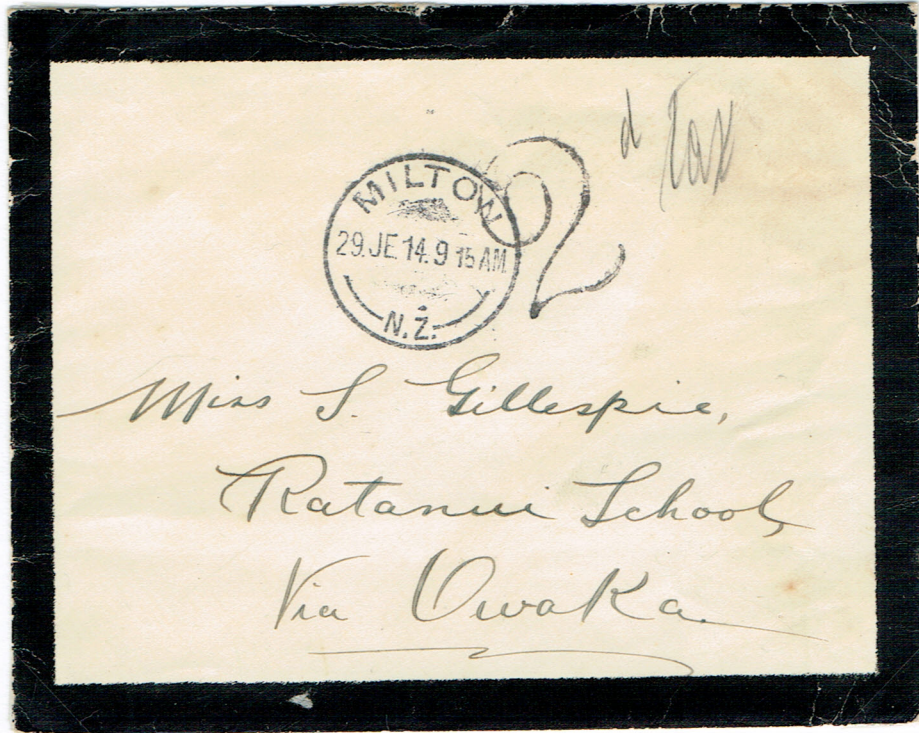 2 d Tax
MILTON
29.JE.14.9 15AM
N.Z.
Miss S. Gillespie,
Ratanui School,
Via Owaka.